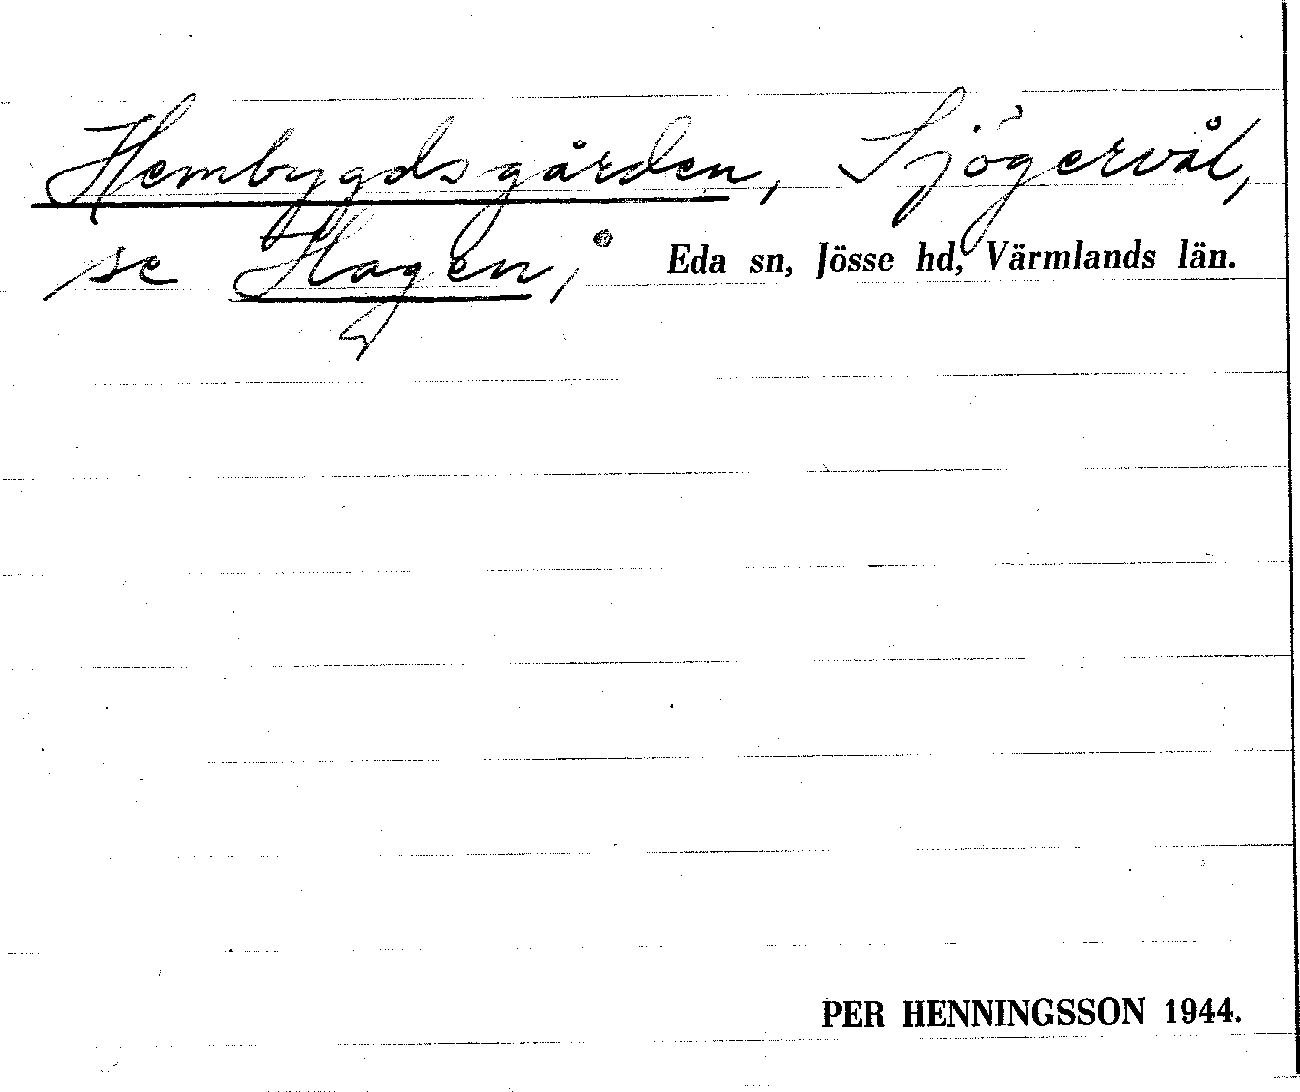 Hembygdsgården, Sjögervål,
se Hagen, Eda sn, Jösse hd, Värmlands län.
PER HENNINGSSON 1944.